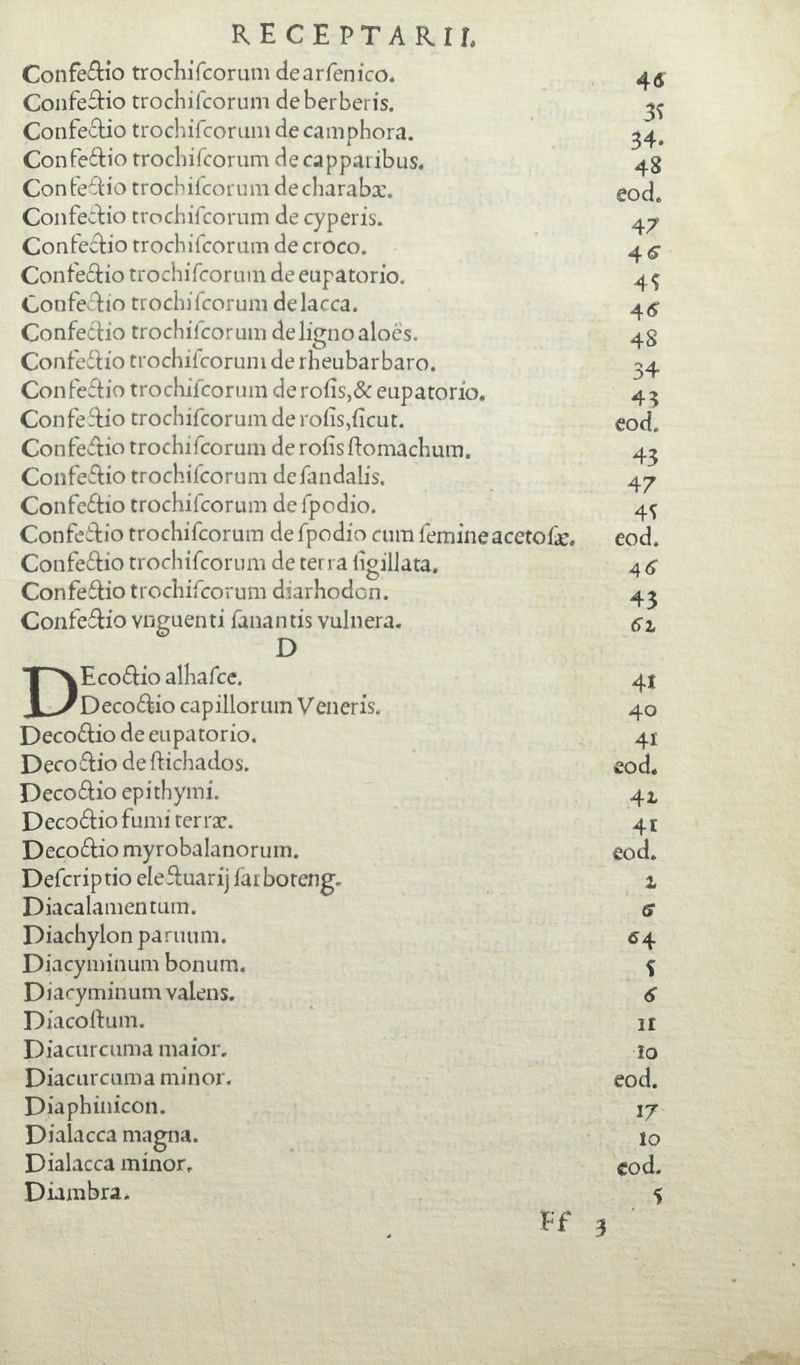 RECEPTARII.
Confectio trochiſcorum de arſenico. 46
Confectio trochiſcorum de berberis. 35
Confectio trochiſcorum de camphora. 34.
Confectio trochiſcorum de capparibus. 48
Confectio trochiſcorum de charabæ. eod.
Confectio trochiſcorum de cyperis. 47
Confectio trochiſcorum de croco. 46
Confectio trochiſcorum de eupatorio. 45
Confectio trochiſcorum de lacca. 46
Confectio trochiſcorum de ligno aloës. 48
Confectio trochiſcorum de rheubarbaro. 34
Confectio trochiſcorum de roſis,& eupatorio. 43
Confectio trochiſcorum de roſis,ſicut. eod.
Confectio trochiſcorum de roſis ſtomachum. 43
Confectio trochiſcorum de ſandalis. 47
Confectio trochiſcorum de ſpodio. 45
Confectio trochiſcorum de ſpodio cum ſemine acetoſæ. eod.
Confectio trochiſcorum de terra ſigillata. 46
Confectio trochiſcorum diarhodon. 43
Confectio vnguenti ſanantis vulnera. 62
D
DEcoctio alhaſce. 41
Decoctio capillorum Veneris. 40
Decoctio de eupatorio. 41
Decoctio de ſtichados. eod.
Decoctio epithymi. 42
Decoctio fumi terræ. 41
Decoctio myrobalanorum. eod.
Deſcriptio electuarij ſarboteng. 2
Diacalamentum. 6
Diachylon paruum. 64
Diacyminum bonum. 5
Diacyminum valens. 6
Diacoſtum. 11
Diacurcuma maior. 10
Diacurcuma minor. eod.
Diaphinicon. 17
Dialacca magna. 10
Dialacca minor. eod.
Diambra. 5
Ff 3